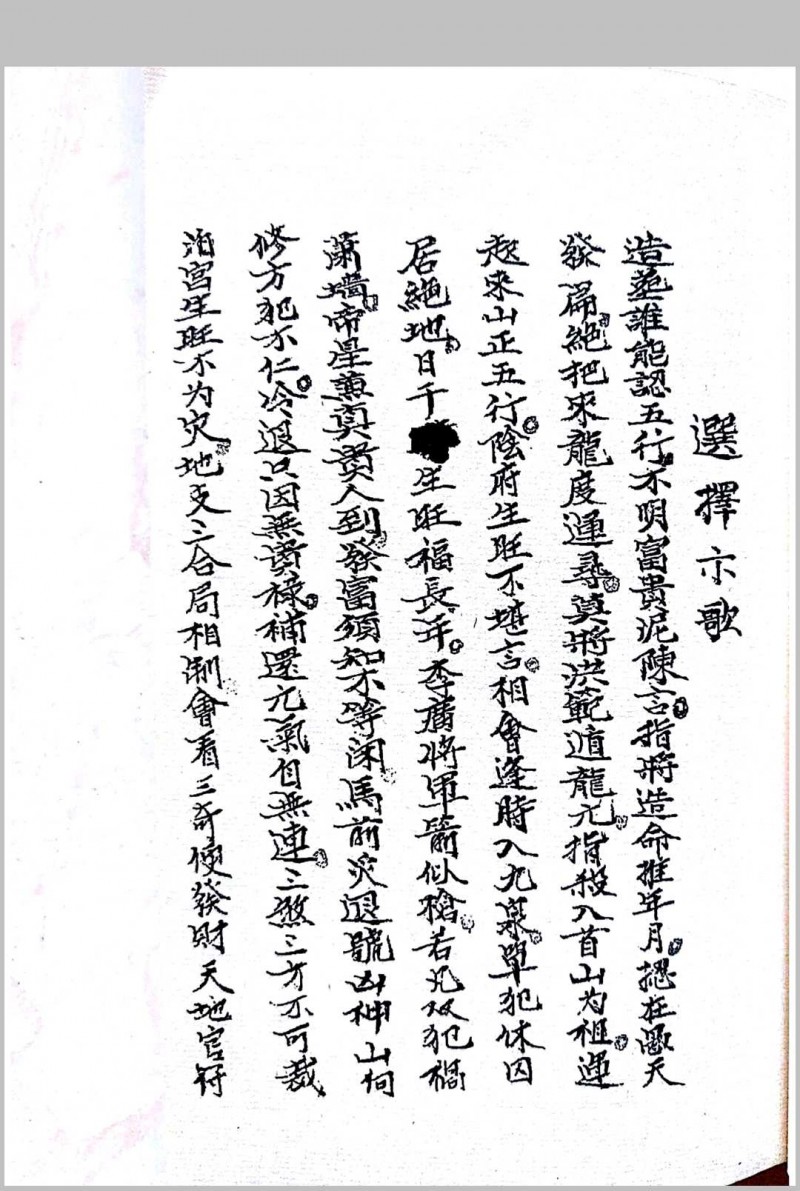 選擇亦歌
造葬誰能認五行不明富貴泥陳言指將造命推年月揔在憑天
發扁絕把來龍度運尋莫將洪範遁龍亢指殺入首山为祖運
起來山正五行陰府生旺不堪言相會逢時入九泉單犯休囚
居絕地日干生旺福長年李廣將軍箭似槍若凡双犯禍
蕭墻帝星兼真貴人到發富須知不等闲馬前災退號凶神山向
修方犯不仁冷退只因無貴祿補還亢氣自無連三煞三方不可裁
泊宮生旺不为灾地支三合局相制會看三奇便發財天地官符